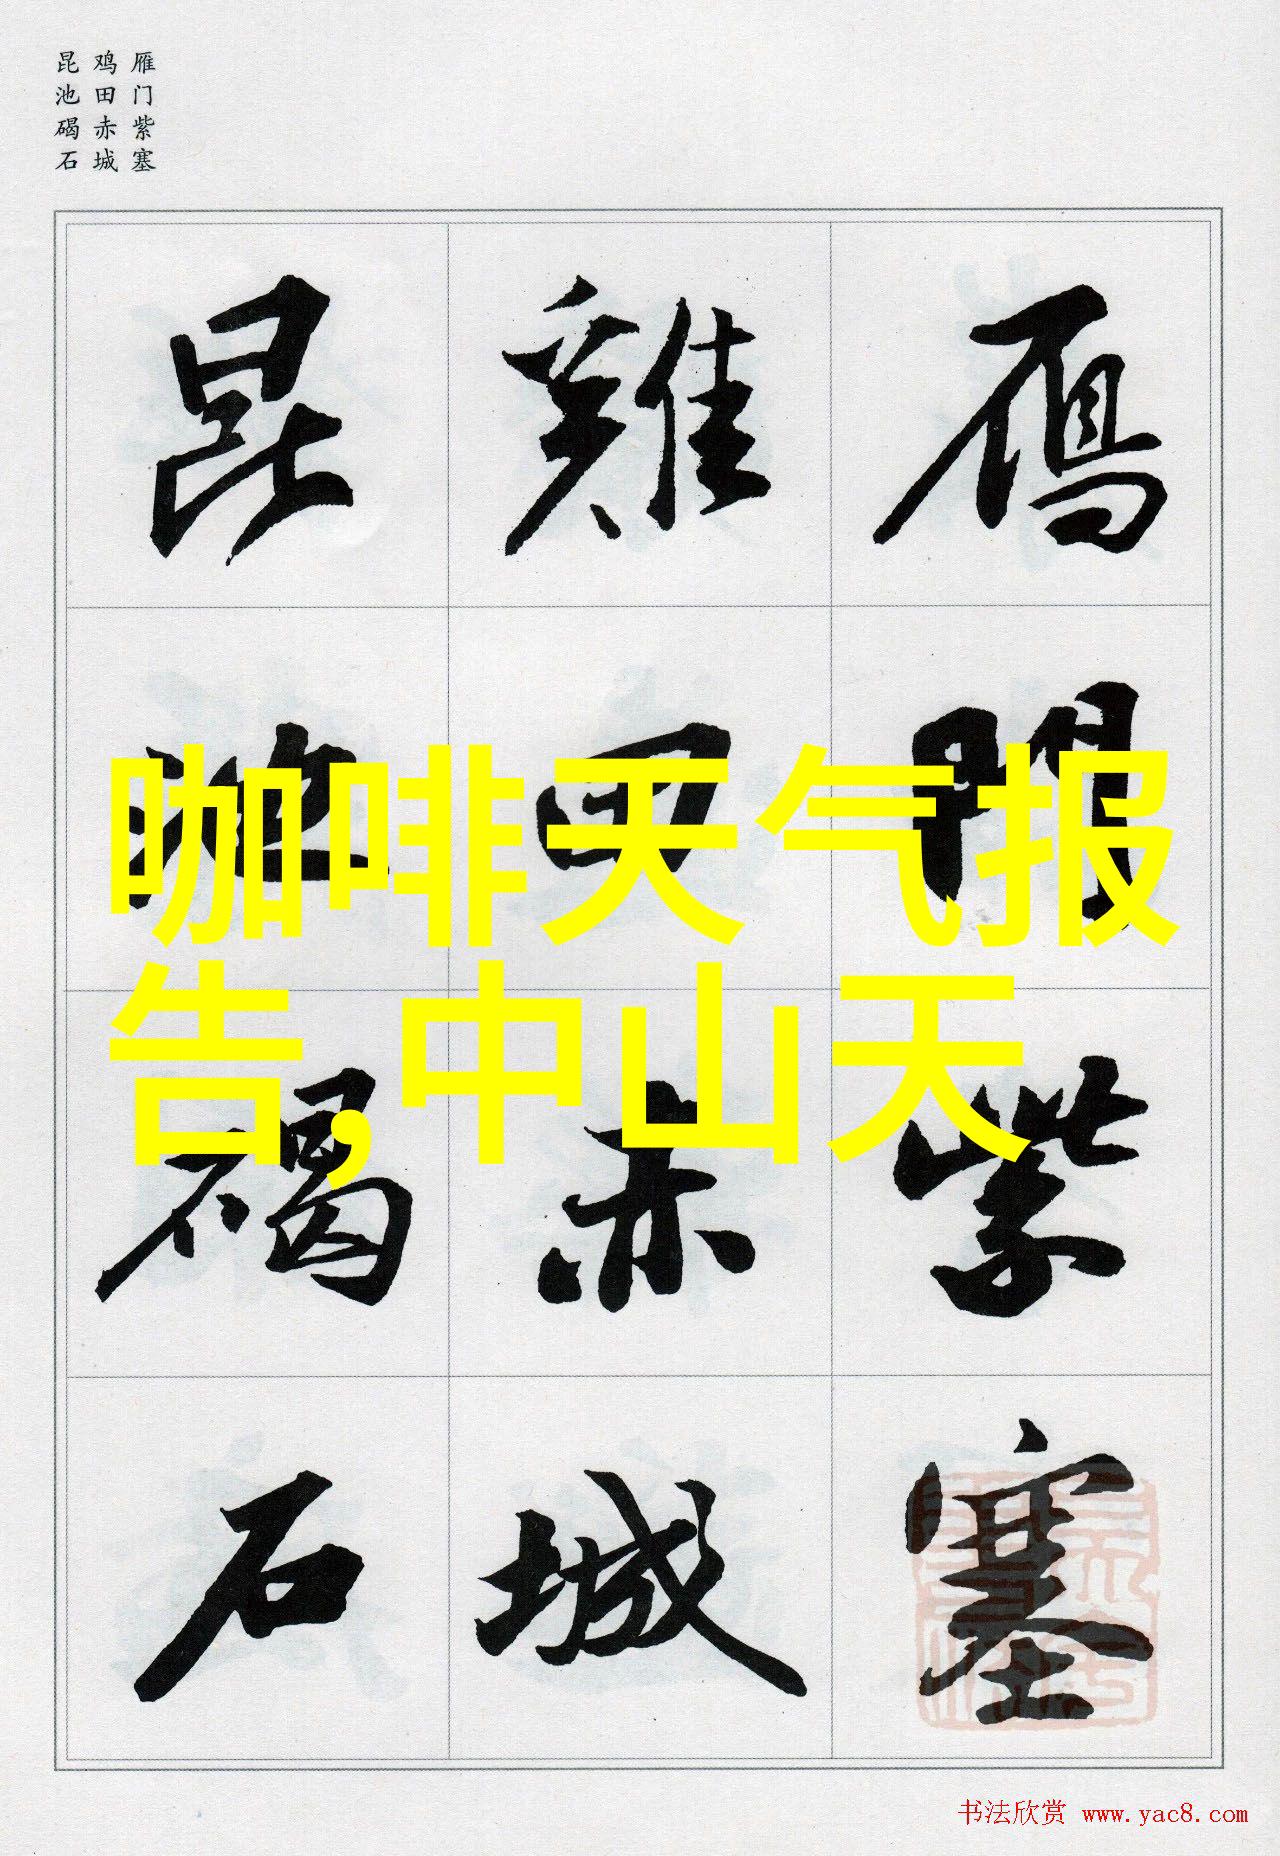 雁门紫塞
鸡田赤城
昆池碣石
雁門紫塞
雞田赤城
昆池碣石
咖啡天气报
告,中山天
书法欣赏 www.yac8.com